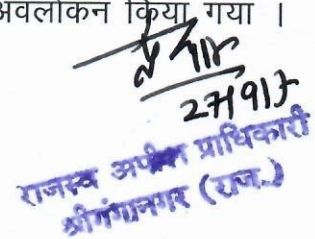 अवलोकन किया गया ।
27/9/17
राजस्व अपील प्राधिकारी
श्रीगंगानगर (राज.)